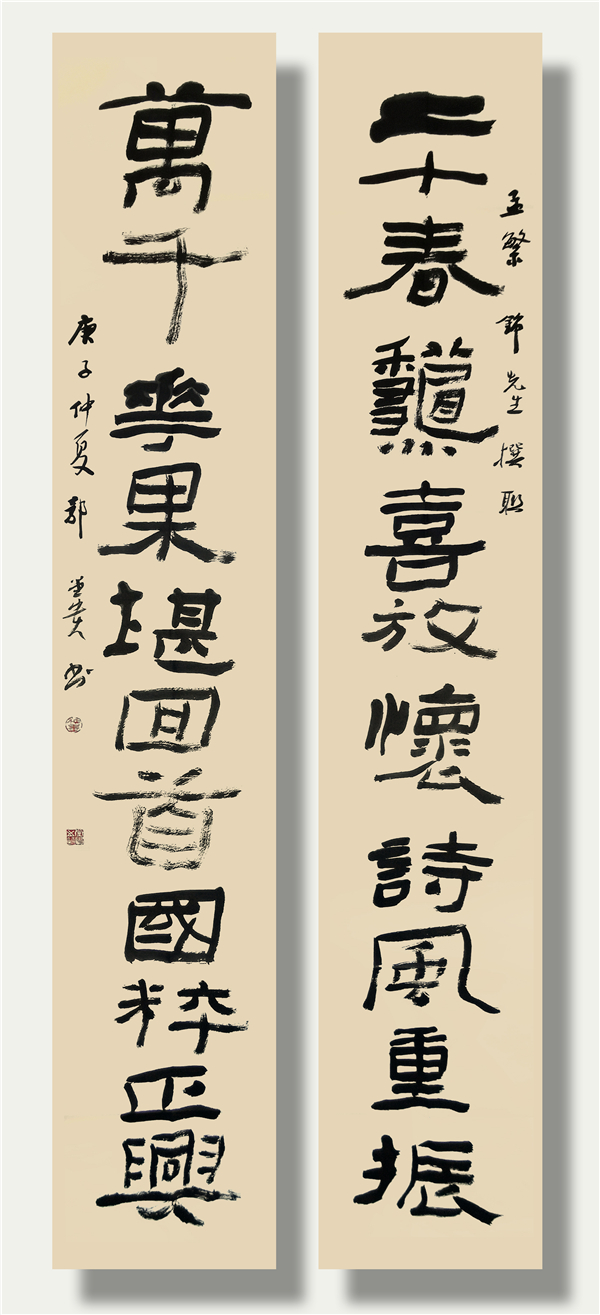 孟繁錦先生撰聯
二十春龝喜放懷詩風重振
萬千華果堪回首國粹正興
庚子仲夏郭貴書